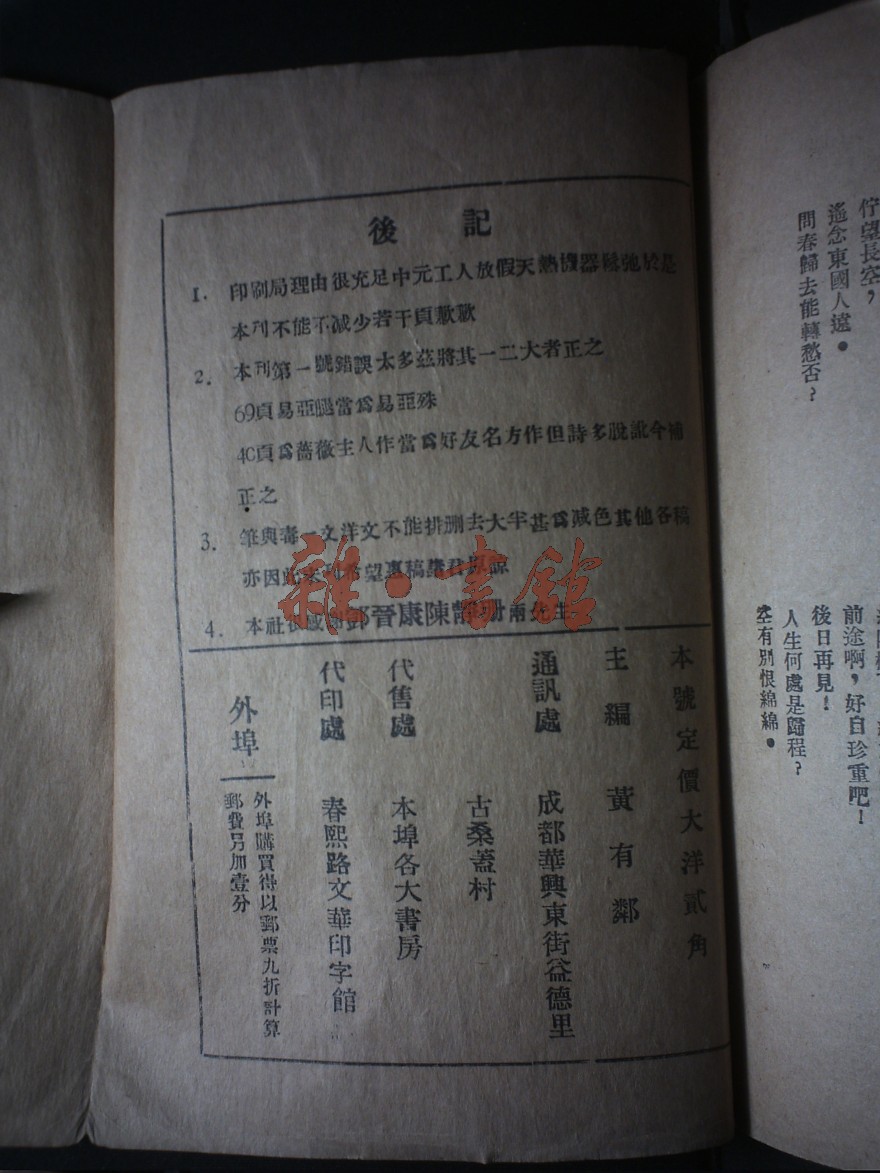 後記
1. 印刷局理由很充足中元工人放假天熱機器鬆弛於是
本刊不能不减少若干頁歉歉
2. 本刊第一號錯誤太多茲將其一二大者正之
69頁易亞腿當爲易亞殊
40頁爲薔薇主人作當爲好友名方作但詩多脫訛今補
正之
3. 筆與毒一文洋文不能排測去大半甚爲减色其他各稿
亦因此未刊希望惠稿諸君原諒
4. 本社很感謝鄧晉康陳 兩先生
本號定價大洋貳角
主編 黃有鄰
通訊處 成都華興東街益德里
古桑蓋村
代售處 本埠各大書房
代印處 春熙路文華印字館
外埠 外埠購買得以郵票九折計算
郵費另加壹分
雜·書館
佇望長空，
遙念東國人遠。
問春歸去能轉愁否？
前途啊，好自珍重吧！
後日再見！
人生何處是歸程？
空有別恨綿綿。